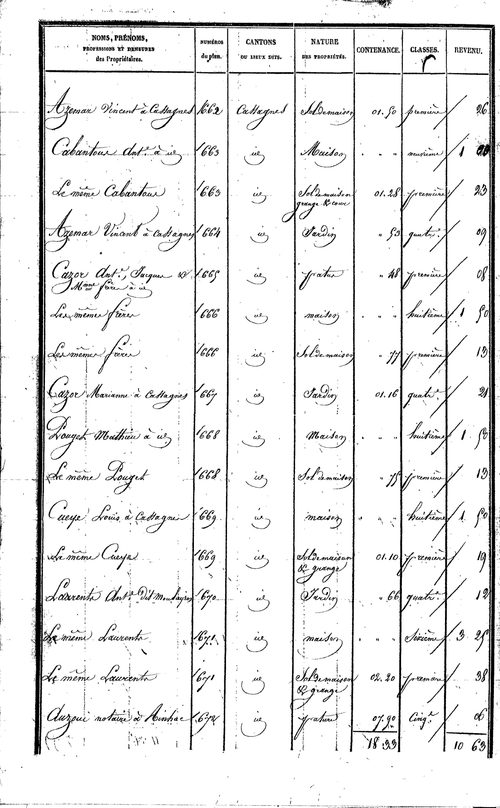 NOMS, PRÉNOMS, PROFESSIONS ET DEMEURES des Propriétaires. NUMÉROS du plan. CANTONS OU LIEUX DITS. NATURE DES PROPRIÉTÉS. CONTENANCE. CLASSES. REVENU.
Azemar Vincent à Cassagnes 1662 Cassagnes Sol de maison 01.50 première 26
Cabantous Ant.e à id 1663 id Maison " " 1
Le même Cabantous 1663 id Sol de maison grange & cour 01.28 première 23
Azemar Vincent à Cassagnes 1664 id Jardin " 53 quatr.e 09
Cazor Ant.e, Jacques & Marie frère à id 1665 id pature " 48 première 08
Les mêmes frères 1666 id maison " " huitième 1 50
Les mêmes frères 1666 id Sol de maison " 77 première 13
Cazor Marianne à Cassagnes 1667 id Jardin 01.16 quatr.e 21
Pouget Mathieu à id 1668 id Maison " " huitième 1 50
Le même Pouget 1668 id Sol de maison " 75 première 13
Cueye Louis à Cassagnes 1669 id maison " " huitième 1 50
Le même Cueye 1669 id Sol de maison & grange 01.10 première 19
Laurents Ant.e dit 1670 id Jardin " 66 quatr.e 12
Le même Laurents 1671 id maison " " Sixième 3 25
Le même Laurents 1671 id Sol de maison & grange 02.20 première 38
notaire à 1672 id pature 07.90 Cinq.e 06
18.33 10 63